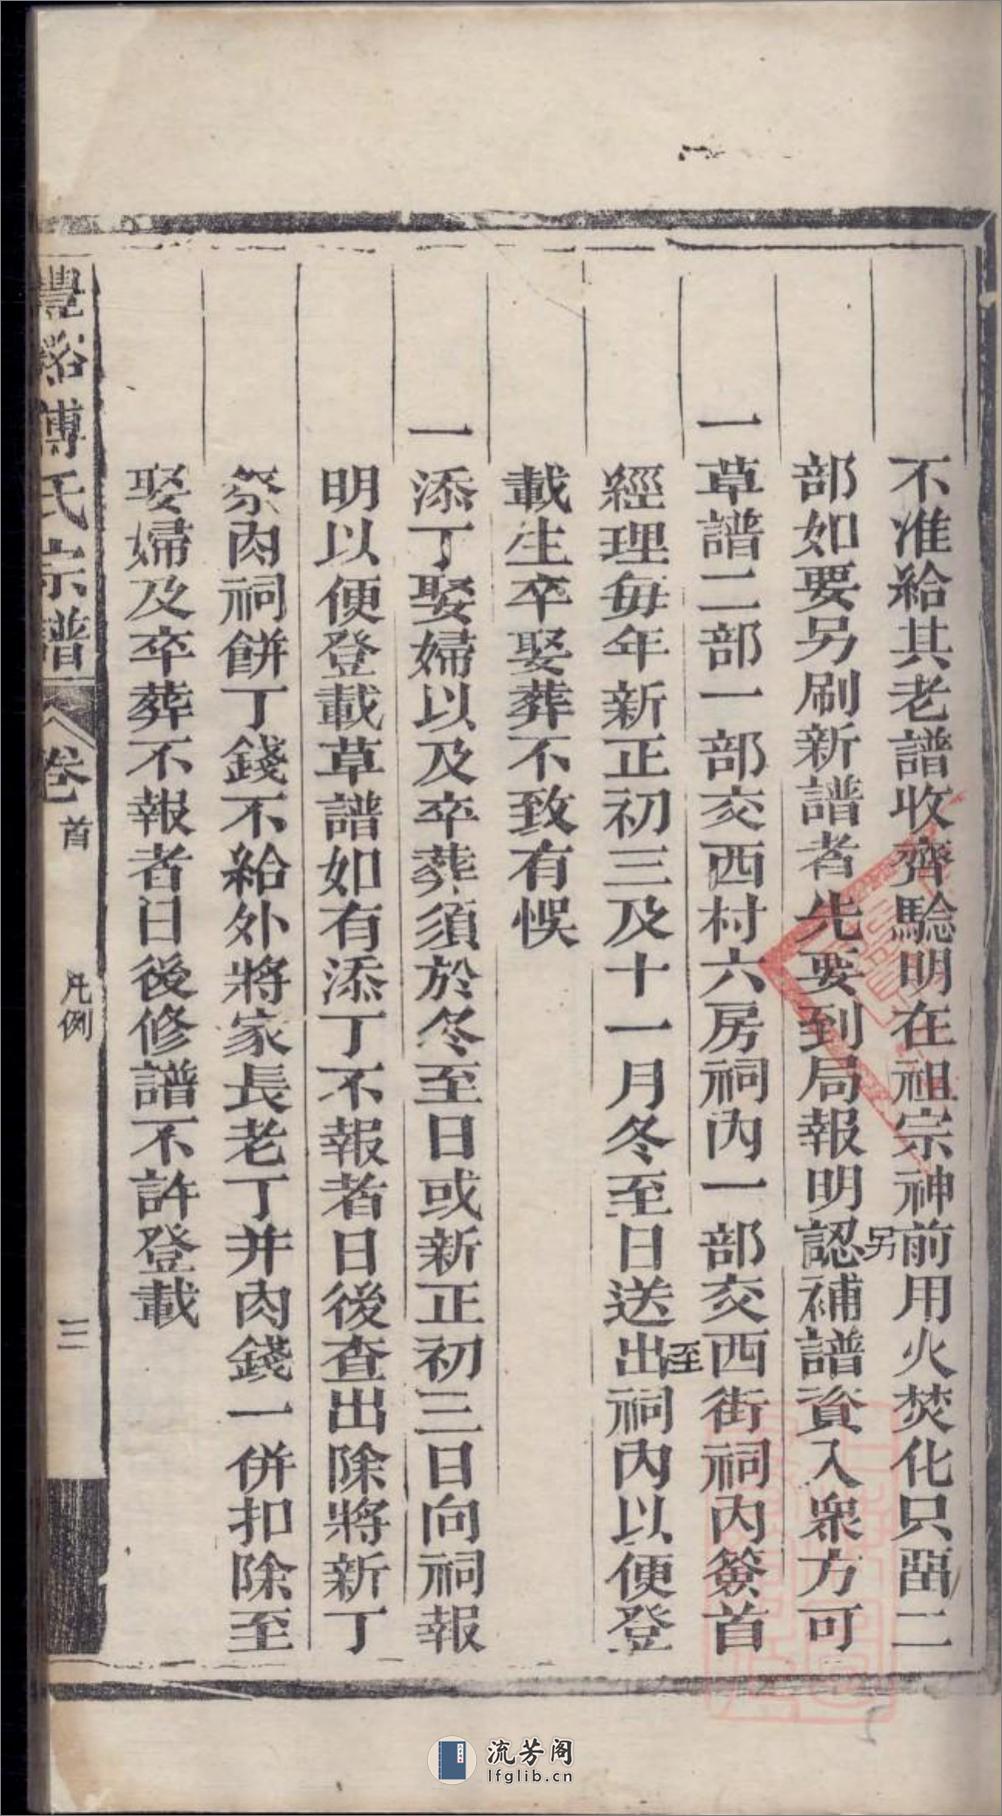 不准給其老譜收齊驗明在祖宗神前用火焚化只畱二
部如要另刷新譜者先要到局報明認補譜資入衆方可
另
一草譜二部一部交西村六房祠內一部交西街祠內簽首
經理每年新正初三及十一月冬至日送出祠內以便登
至
載生卒娶葬不致有悞
一添丁娶婦以及卒葬須於冬至日或新正初三日向祠報
明以便登載草譜如有添丁不報者日後查出除將新丁
祭肉祠餅丁錢不給外將家長老丁并肉錢一併扣除至
娶婦及卒葬不報者日後修譜不許登載
豐谿傅氏宗譜 卷首 凡例 三
流芳阁
lfglib.cn